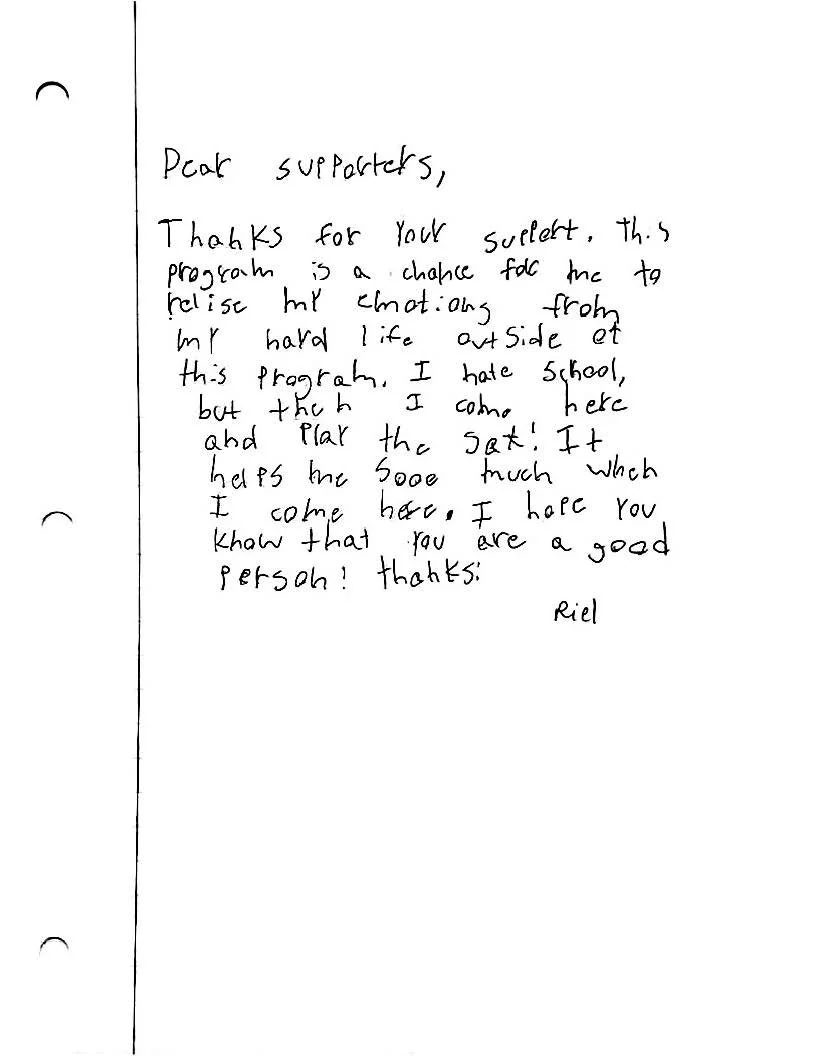 Dear supporters,
Thanks for your support. This
program is a chance for me to
relise my emotions from
my hard life outside of
this program. I hate school,
but then I come here
and play the sax! It
helps me sooo much when
I come here. I hope you
know that you are a good
person! thanks!
Riel